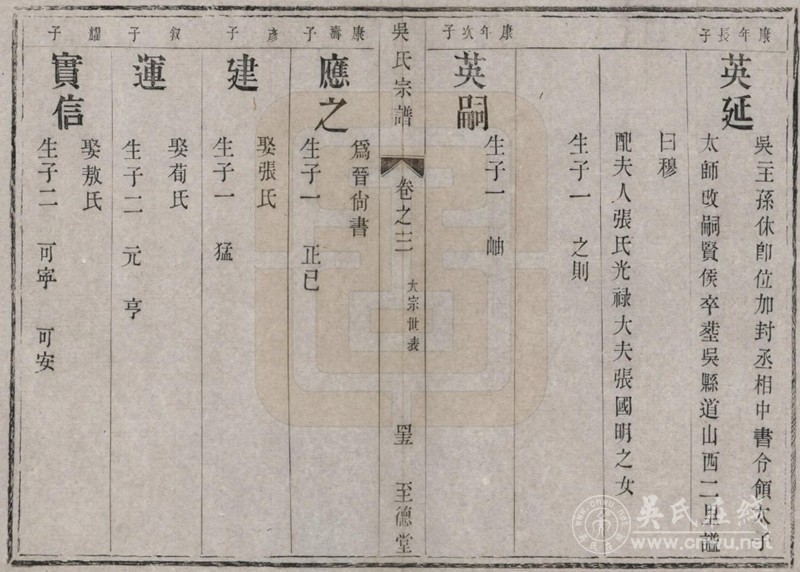 康年長子
英延
吳主孫休卽位加封丞相中書令領太子
太師改嗣賢侯卒塟吳縣道山西二里諡
曰穆
配夫人張氏光祿大夫張國明之女
生子一 之則
康年次子
英嗣
生子一 岫
吳氏宗譜
卷之三
大宗世表
至德堂
康壽子
應之
爲晉尙書
生子一 正已
彥子
建
娶張氏
生子一 猛
叙子
運
娶荀氏
生子二 元 亨
耀子
實信
娶敖氏
生子二 可寧 可安
吳氏在線
www.cnwu.net